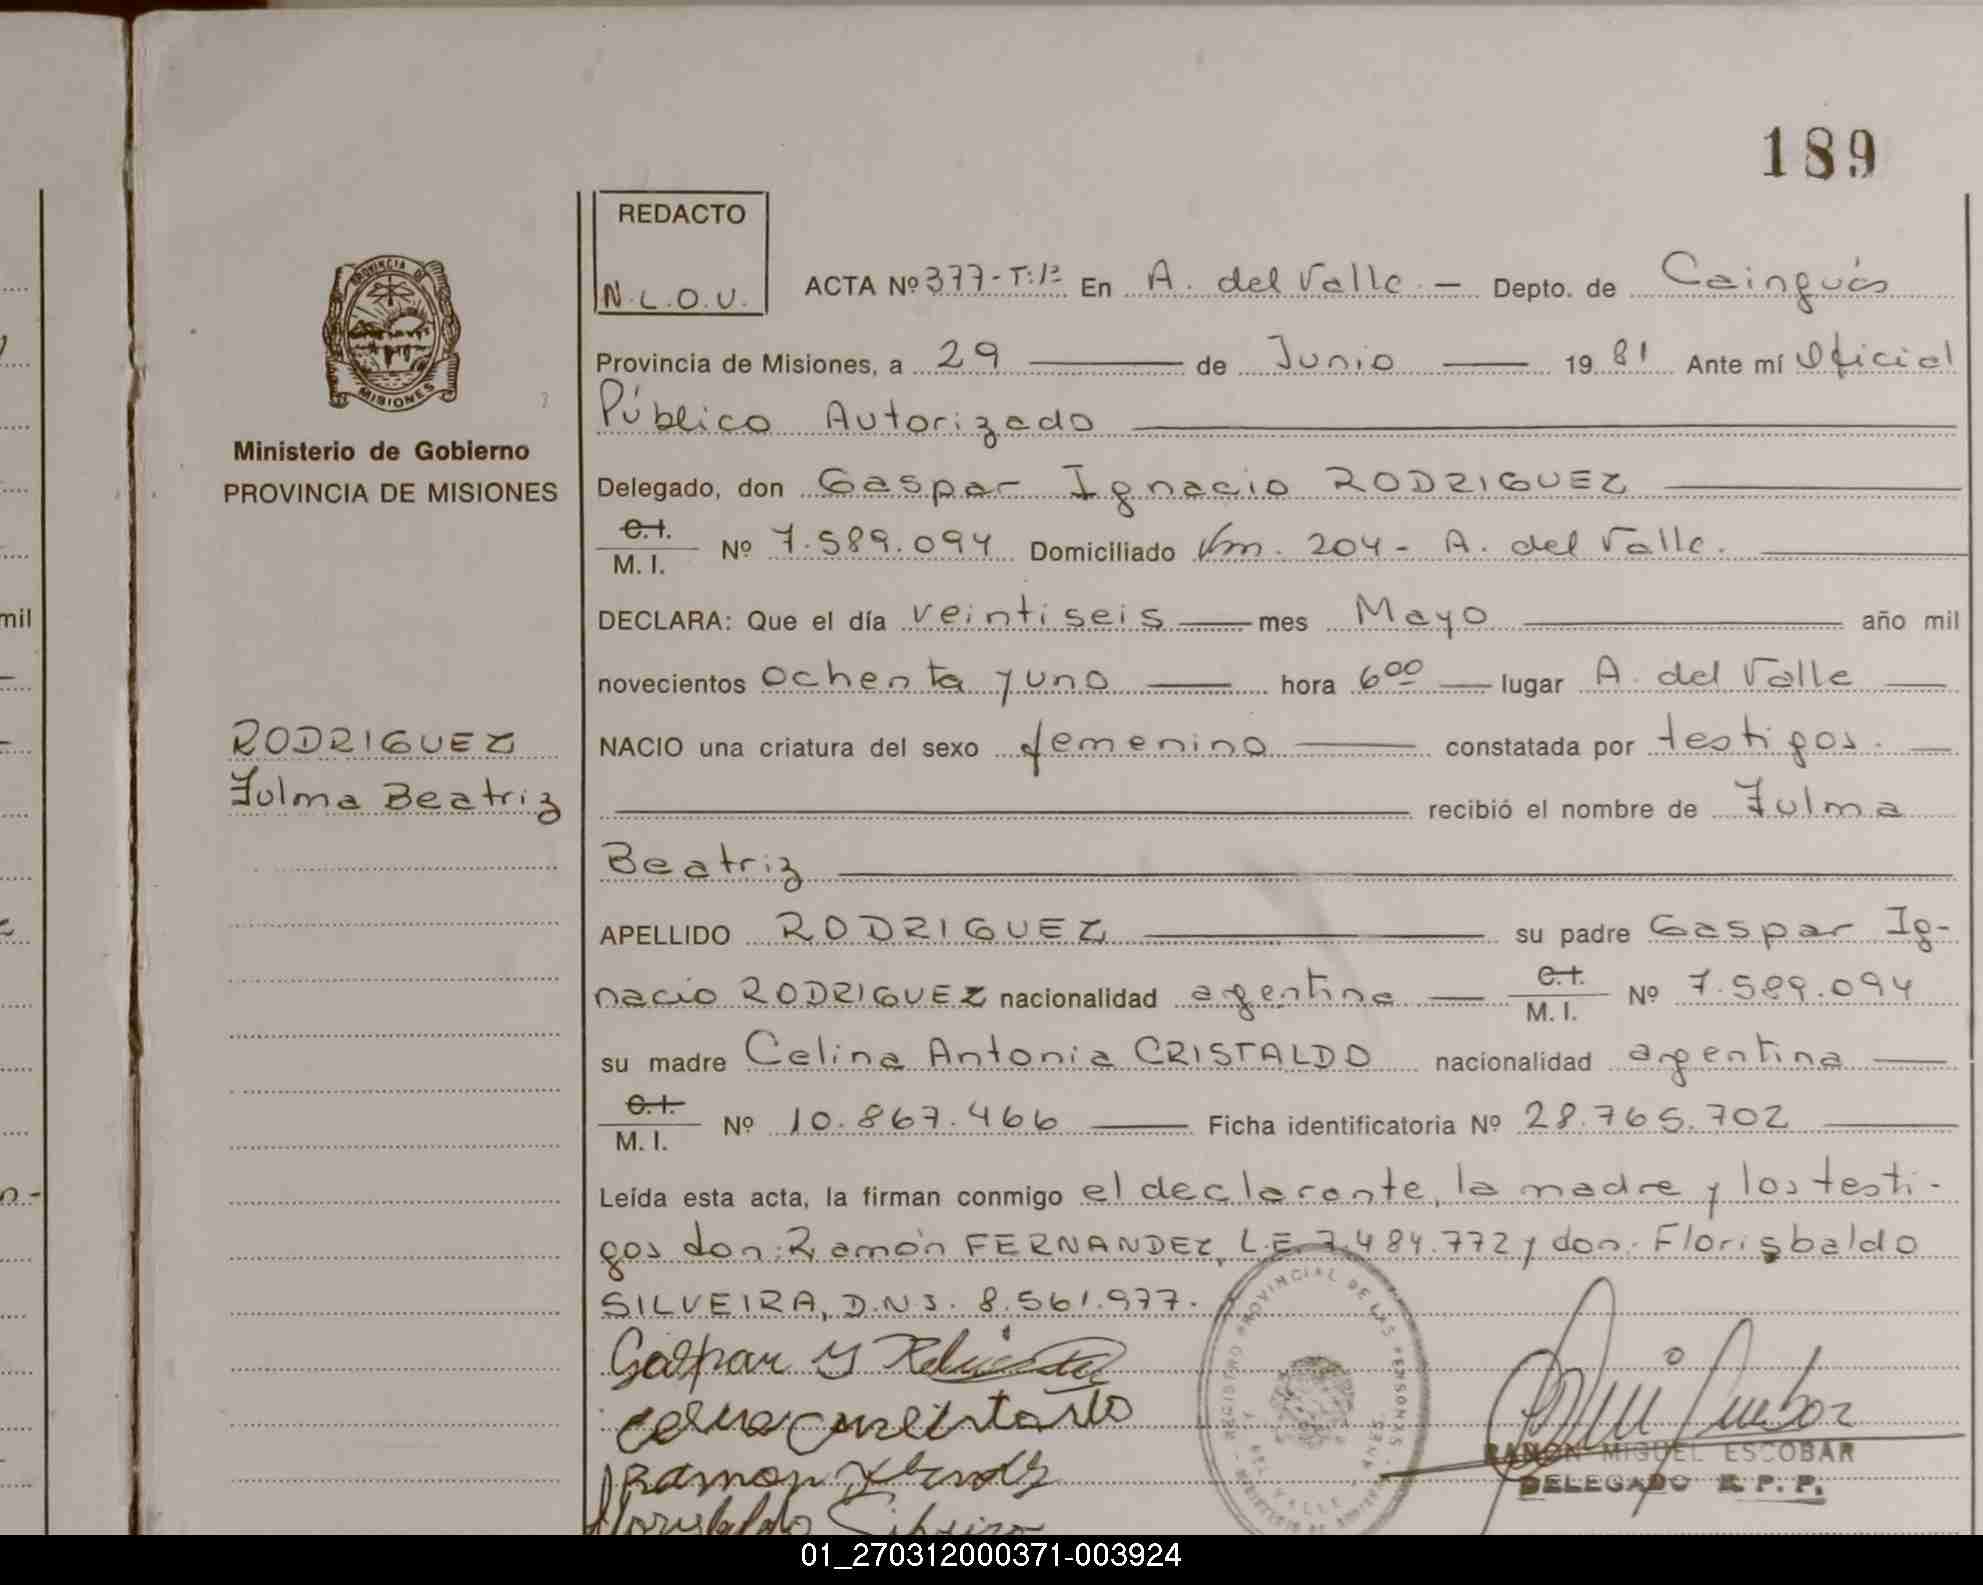 189
REDACTO
N.L.O.U.
ACTA Nº 377-T:1º En A. del Valle.- Depto. de Cainguás
PROVINCIA DE
MISIONES
Provincia de Misiones, a 29 de Junio 1981 Ante mí Oficial
Público Autorizado
Ministerio de Gobierno
PROVINCIA DE MISIONES
Delegado, don Gaspar Ignacio RODRIGUEZ
C.I.
M. I. Nº 7.589.094 Domiciliado Km. 204- A. del Valle.
DECLARA: Que el día veintiseis mes Mayo año mil
novecientos ochenta y uno hora 6 00 lugar A. del Valle
RODRIGUEZ
Zulma Beatriz
NACIO una criatura del sexo femenino constatada por testigos.
recibió el nombre de Zulma
Beatriz
APELLIDO RODRIGUEZ su padre Gaspar Ig-
nacio RODRIGUEZ nacionalidad argentina C.I. M. I. Nº 7.589.094
su madre Celina Antonia CRISTALDO nacionalidad argentina
C.I.
M. I. Nº 10.867.466 Ficha identificatoria Nº 28.765.702
Leída esta acta, la firman conmigo el declarante, la madre y los testi-
gos don: Ramón FERNANDEZ, L.E. 7.484.772 y don: Florisbaldo
SILVEIRA, D.N.I. 8.561.977.
Gaspar
Ramon
REGISTRO PROVINCIAL DE LAS PERSONAS
RAMON MIGUEL ESCOBAR
DELEGADO R. P. P.
mil
01_270312000371-003924